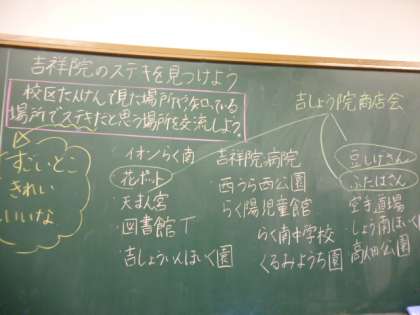 吉祥院のステキを見つけよう
校区たんけんで見た場所や知っている
場所でステキだと思う場所を交流しよう。
すごいとこ
きれい
いいな
・イオンらく南
花ポット
・天まん宮
・図書館
・吉しょういんほいく園
吉祥院病院
・西うら西公園
らく陽児童館
らく南中学校
くるみようち園
吉しょう院商店会
ふたばさん
空手道場
・しょう南ほいく園
高畑公園